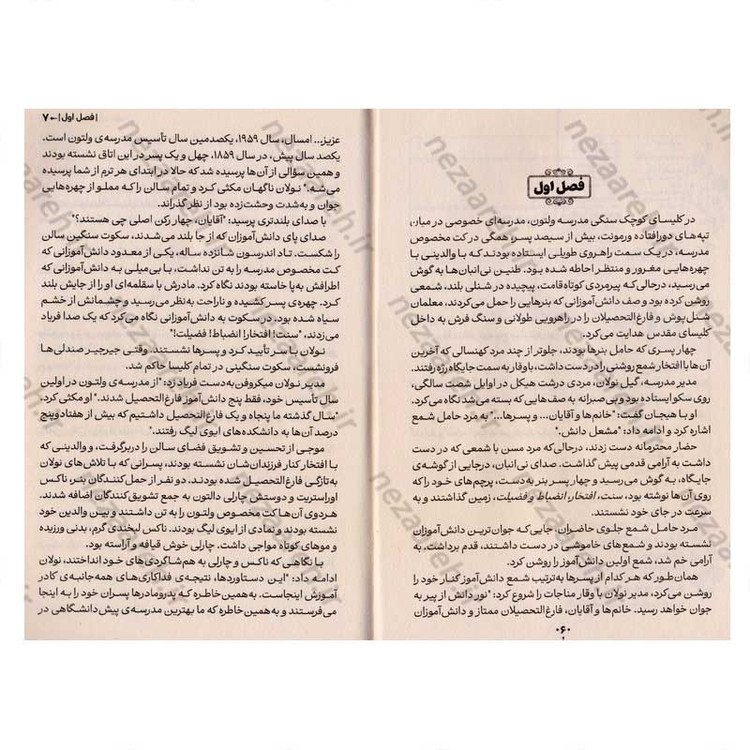 فصل اول
در کلیسای کوچک سنگی مدرسه ولتون، مدرسه‌ای خصوصی در میان
تپه‌های دورافتاده ورمونت، بیش از سیصد پسر، همگی در کت مخصوص
مدرسه، در یک سمت راهروی طویلی ایستاده بودند که با والدینی با
چهره‌هایی مغرور و منتظر احاطه شده بود. طنین نی‌انبان‌ها به گوش
می‌رسید، درحالی‌که پیرمردی کوتاه‌قامت، پیچیده در شنلی بلند، شمعی
روشن کرده بود و صف دانش‌آموزانی که بنرهایی را حمل می‌کردند، معلمان
شنل‌پوش و فارغ‌التحصیلان را در راهرویی طولانی و سنگ فرش به داخل
کلیسای مقدس هدایت می‌کرد.
چهار پسری که حامل بنرها بودند، جلوتر از چند مرد کهنسالی که آخرین
آن‌ها با افتخار شمع روشنی را در دست داشت، باوقار به سمت جایگاه رژه رفتند.
مدیر مدرسه، گیل نولان، مردی درشت هیکل در اوایل شصت سالگی،
روی سکو ایستاده بود و بی‌صبرانه به صف‌هایی که بسته می‌شد نگاه می‌کرد.
او با هیجان گفت: "خانم‌ها و آقایان... و پسرها..." به مرد حامل شمع
اشاره کرد و ادامه داد: "مشعل دانش."
حضار محترمانه دست زدند، درحالی‌که مرد مسن با شمعی که در دست
داشت به آرامی قدمی پیش گذاشت. صدای نی‌انبان، درجایی از گوشه‌ی
جایگاه، به گوش می‌رسید و چهار پسر بنر به دست، پرچم‌های خود را که
روی آن‌ها نوشته بود، سنت، افتخار، انضباط و فضیلت، زمین گذاشتند و به
سرعت در جای خود نشستند.
مرد حامل شمع جلوی حاضران، جایی‌که جوان‌ترین دانش‌آموزان
نشسته بودند و شمع‌های خاموشی در دست داشتند، قدم برداشت، به
آرامی خم شد، شمع اولین دانش‌آموز را روشن کرد.
همان‌طور که هرکدام از پسرها به‌ترتیب شمع دانش‌آموز کنار خود را
روشن می‌کرد، مدیر نولان با وقار مناجات را شروع کرد: "نور دانش از پیر به
جوان خواهد رسید. خانم‌ها و آقایان، فارغ‌التحصیلان ممتاز و دانش‌آموزان
۶۰
|فصل اول| ۷
عزیز... امسال، سال ۱۹۵۹، یکصدمین سال تأسیس مدرسه‌ی ولتون است.
یکصد سال پیش، در سال ۱۸۵۹، چهل و یک پسر در این اتاق نشسته بودند
و همین سؤالی از آن‌ها پرسیده شد که حالا در ابتدای هر ترم از شما پرسیده
می‌شه." نولان ناگهان مکثی کرد و تمام سالن را که مملو از چهره‌هایی
جوان و به‌شدت وحشت‌زده بود از نظر گذراند.
با صدای بلندتری پرسید: "آقایان، چهار رکن اصلی چی هستند؟"
صدای پای دانش‌آموزان که از جا بلند می‌شدند، سکوت سنگین سالن
را شکست. تاد اندرسون شانزده ساله، یکی از معدود دانش‌آموزانی که
کت مخصوص مدرسه را به تن نداشت، با بی‌میلی به دانش‌آموزانی که
اطرافش به‌پا خاسته بودند نگاه کرد. مادرش با سقلمه‌ای او را از جایش بلند
کرد. چهره‌ی پسر کشیده و ناراحت به‌نظر می‌رسید و چشمانش از خشم
سیاه شده بود، در سکوت به دانش‌آموزانی نگاه می‌کرد که یک صدا فریاد
می‌زدند، "سنت! افتخار! انضباط! فضیلت!"
نولان با سر تأیید کرد و پسرها نشستند. وقتی جیرجیر صندلی‌ها
فرونشست، سکوت سنگینی در تمام کلیسا حاکم شد.
مدیر نولان میکروفن‌به‌دست فریاد زد: "از مدرسه‌ی ولتون در اولین
سال تأسیس خود، فقط پنج دانش‌آموز فارغ‌التحصیل شدند." او مکثی کرد.
"سال گذشته ما پنجاه و یک فارغ‌التحصیل داشتیم که بیش از هفتاد و پنج
درصد آن‌ها به دانشکده‌های ایوی لیگ رفتند."
موجی از تحسین و تشویق فضای سالن را دربرگرفت، و والدینی که
با افتخار کنار فرزندان‌شان نشسته بودند، پسرانی که با تلاش‌های نولان
به‌تازگی فارغ‌التحصیل شده بودند. دو نفر از حمل‌کنندگان بنر، ناکس
اوراستریت و دوستش چارلی دالتون به جمع تشویق‌کنندگان اضافه شدند.
هردوی آن‌ها کت مخصوص ولتون را به تن داشتند و بین والدین خود
نشسته بودند و نمادی از ایوی لیگ بودند. ناکس لبخندی گرم، بدنی ورزیده
و موهای کوتاه مواجی داشت. چارلی خوش قیافه و آراسته بود.
با نگاهی که ناکس و چارلی به هم‌شاگردی‌های خود انداختند، نولان
ادامه داد: "این دستاوردها، نتیجه‌ی فداکاری‌های همه‌جانبه‌ی کادر
آموزش اینجاست. به‌همین خاطره که پدرومادرها پسران خود را به اینجا
می‌فرستند و به‌همین خاطره که ما بهترین مدرسه‌ی پیش دانشگاهی در
nezaareh.ir